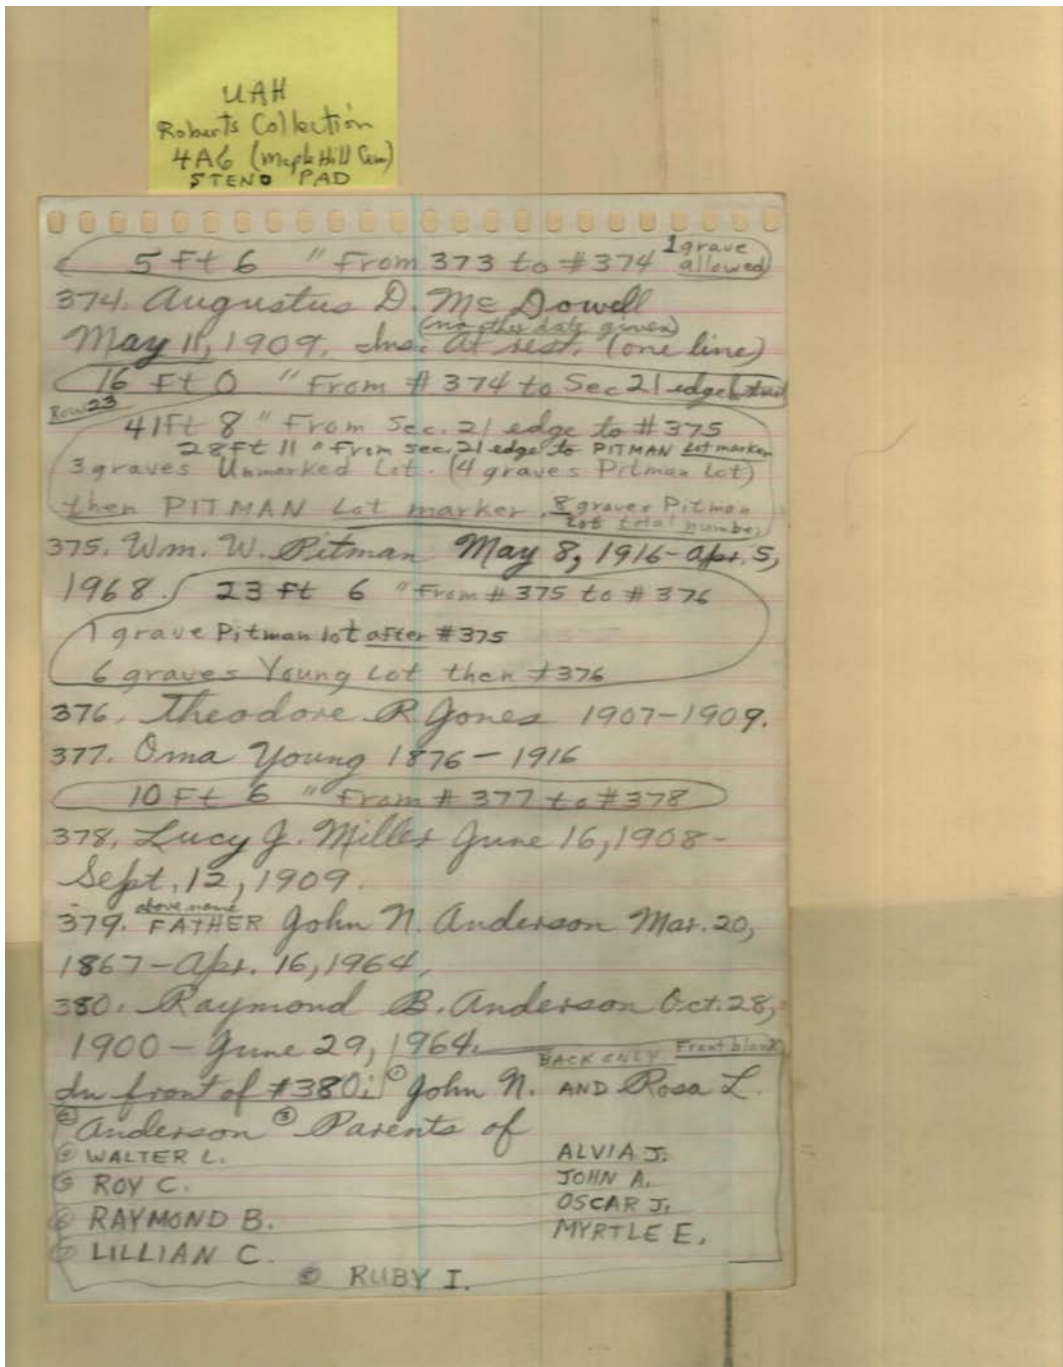 UAH
Roberts Collection
4A6 (Maple Hill Cem)
STENO PAD
5 Ft 6 " From 373 to #374 1 grave allowed
374. Augustus D. McDowell
(no other date given)
May 11, 1909. Ins. At rest. (one line)
16 Ft 0 " From #374 to Sec 21 edge
Row 23
41 Ft 8 " From Sec. 21 edge to #375
28 Ft 11 " From sec. 21 edge to PITMAN Lot marker
3 graves Unmarked Lot. (4 graves Pitman Lot)
then PITMAN Lot marker. 8 graves Pitman
Lot total number
375. Wm. W. Pitman May 8, 1916 - Apr. 5,
1968. 23 Ft 6 " From #375 to #376
1 grave Pitman lot after #375
6 graves Young Lot then #376
376. Theodore R. Jones 1907-1909.
377. Oma Young 1876 - 1916
10 Ft 6 " From #377 to #378
378. Lucy J. Miller June 16, 1908 -
Sept. 12, 1909.
above name
379. FATHER John N. Anderson Mar. 20,
1867 - Apr. 16, 1964.
380. Raymond B. Anderson Oct. 28,
1900 - June 29, 1964.
BACK ONLY Front blank
In front of #380: ① John N. AND Rosa L.
② Anderson ③ Parents of
④ WALTER L. ALVIA J.
⑤ ROY C. JOHN A.
⑥ RAYMOND B. OSCAR J.
⑦ LILLIAN C. MYRTLE E.
⑧ RUBY I.